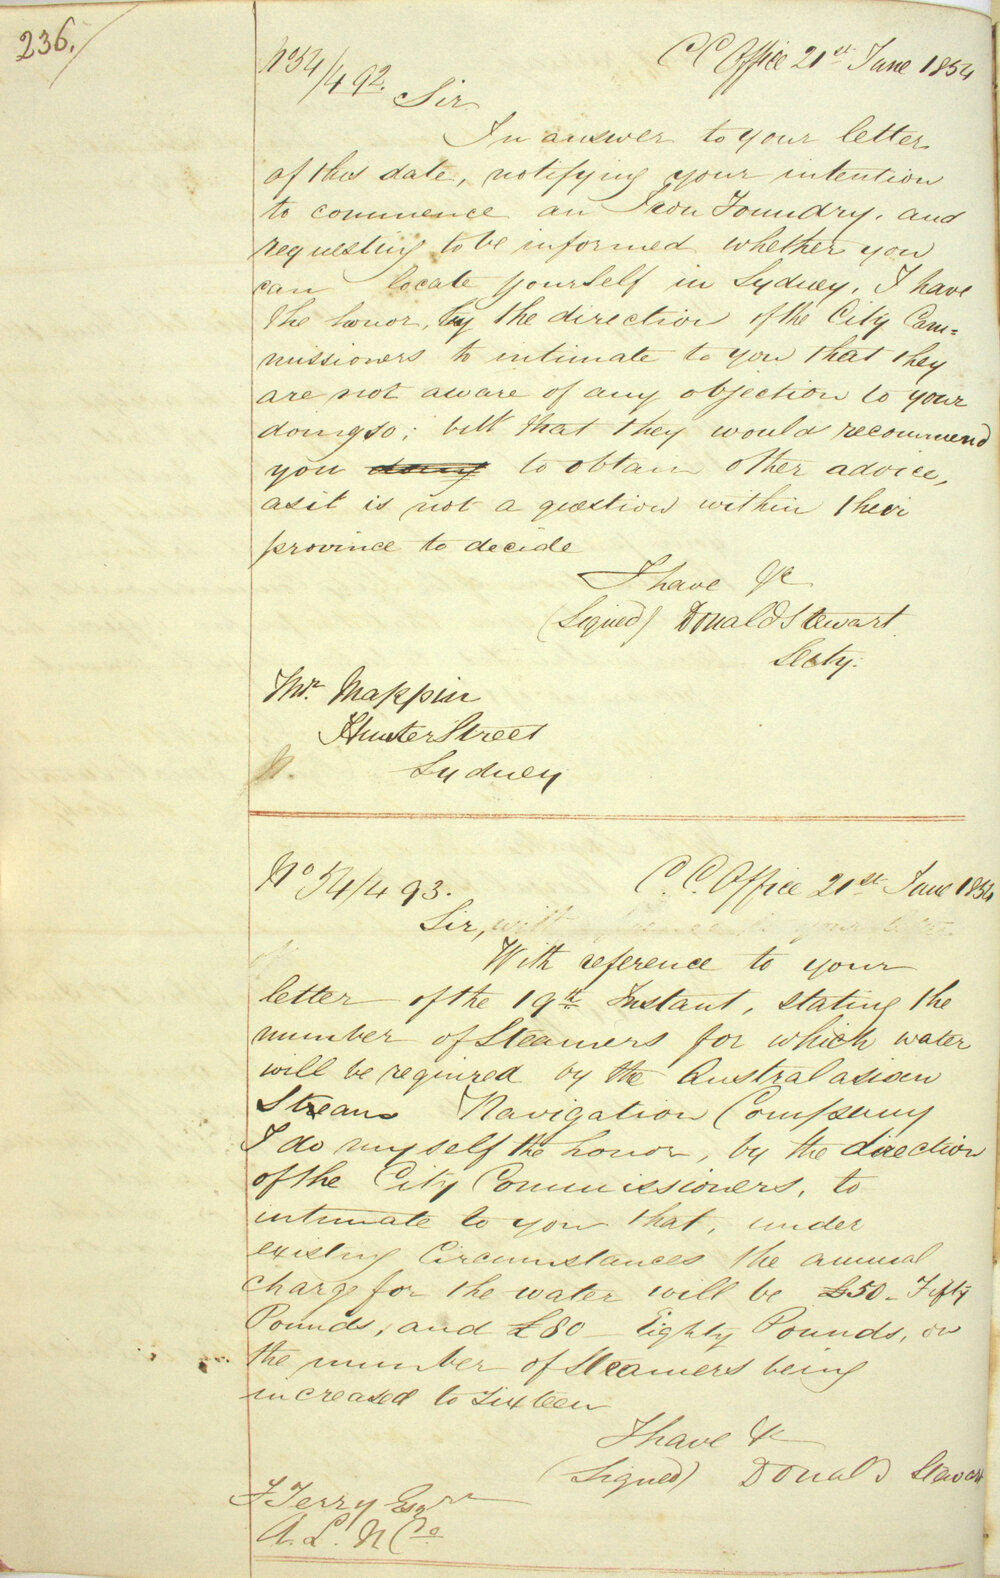 236.
No 54/492.
C C Office 21st June 1854
Sir
In answer to your letter
of this date, notifying your intention
to commence an Iron Foundry, and
requesting to be informed whether you
can locate yourself in Sydney, I have
the honor, by the direction of the City Com=
missioners to intimate to you that they
are not aware of any objection to your
doing so; but that they would recommend
you to obtain other advice,
as it is not a question within their
province to decide
I have &c
(Signed) Donald Stewart
Secty.
Mr. Mappin
Hunter Street
Sydney
No 54/493.
C. C. Office 21st June 1854
Sir,
With reference to your
letter of the 19th Instant, stating the
number of Steamers for which water
will be required by the Australasian
Steam Navigation Company
I do myself the honor, by the direction
of the City Commissioners, to
intimate to you that, under
existing Circumstances the annual
charge for the water will be £50 - Fifty
Pounds, and £80 - Eighty Pounds, on
the number of Steamers being
increased to sixteen
I have &c
(Signed) Donald Stewart
F Terry Esqre
A. S. N Co.